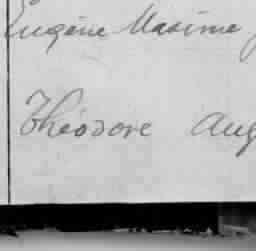 Eugène Maxime
Théodore Aug